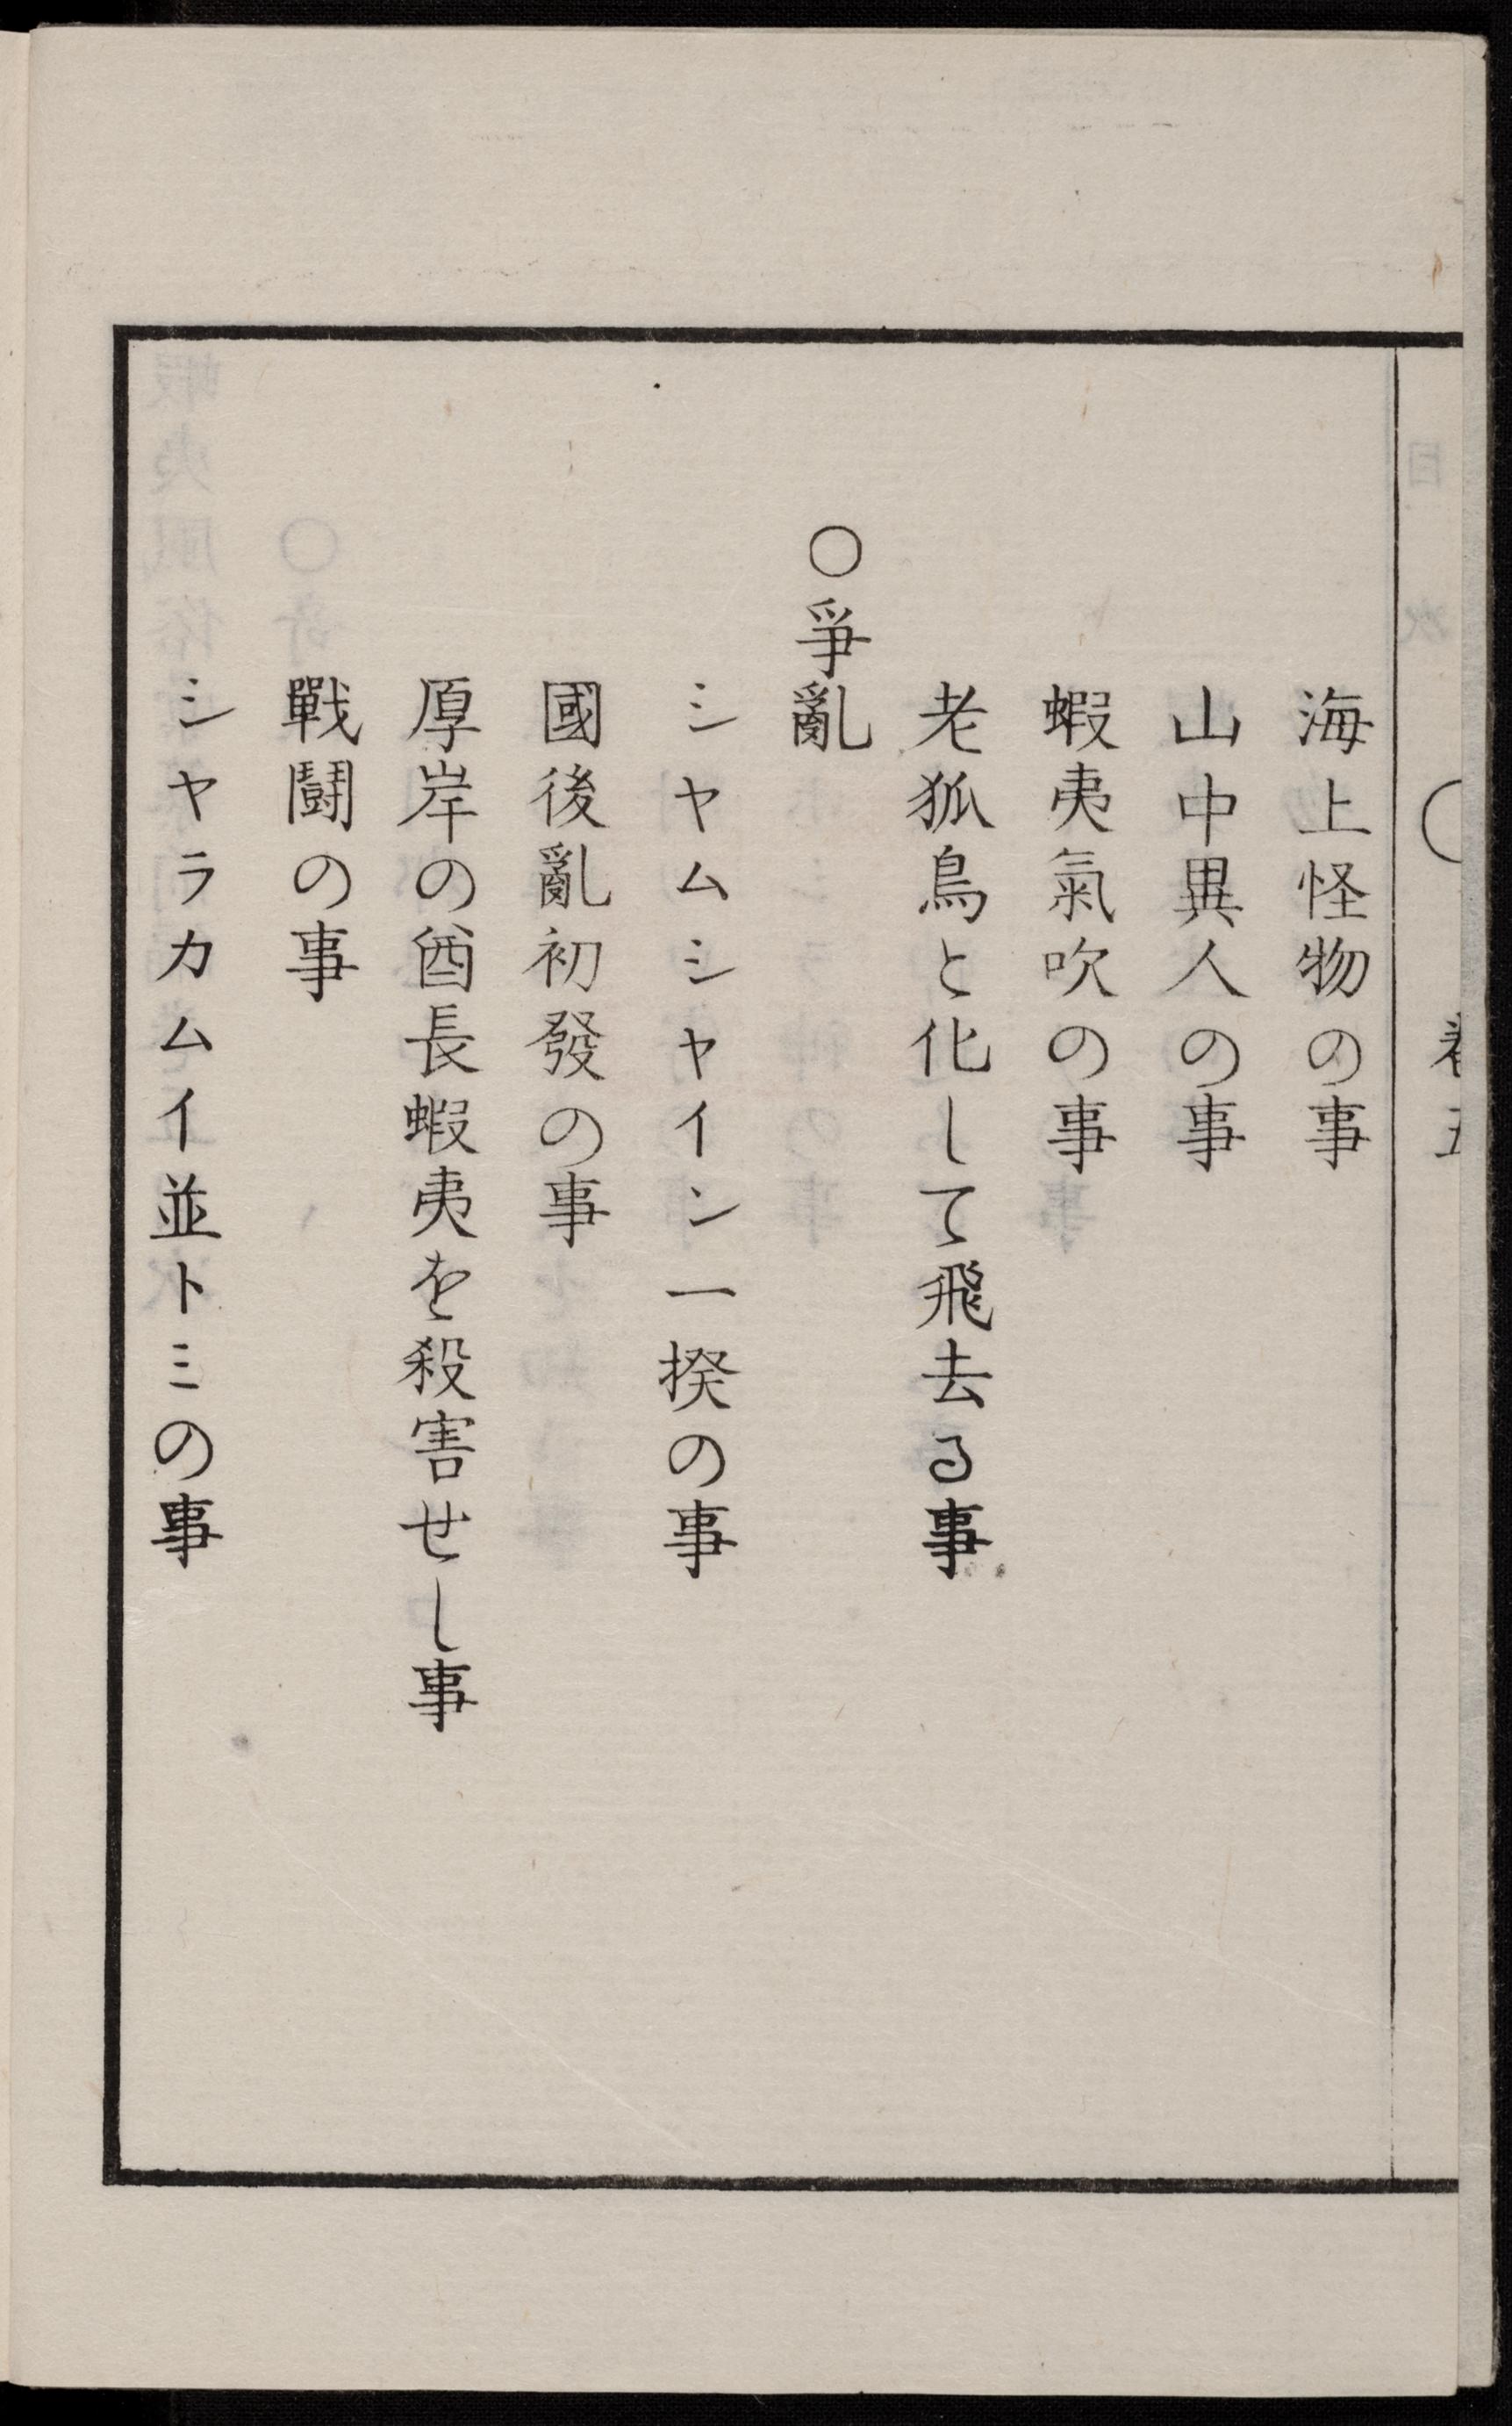 海上怪物の事
山中異人の事
蝦夷氣吹の事
老狐鳥と化して飛去る事
〇爭亂
シヤムシヤイン一揆の事
國後亂初發の事
厚岸の酋長蝦夷を殺害せし事
戰鬪の事
シヤラカムイ並トミの事